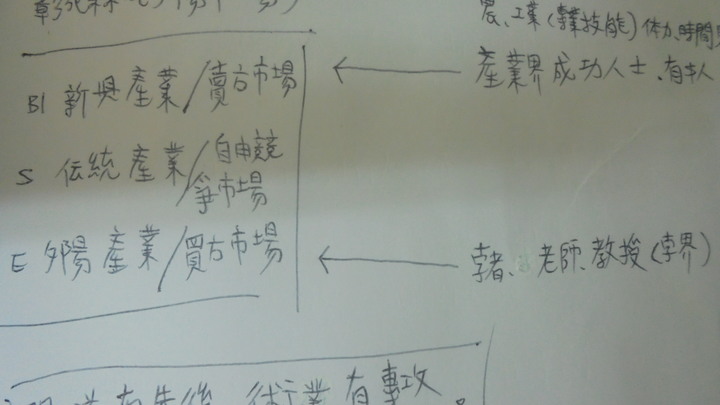 農、工業(專業技能)体力、時間
BI 新興產業/賣方市場
產業界成功人士、有本人
S 伝統產業/自由競
爭市場
E 夕陽產業/買方市場
学者、老師、教授(学界)
有先後 術業有專攻。